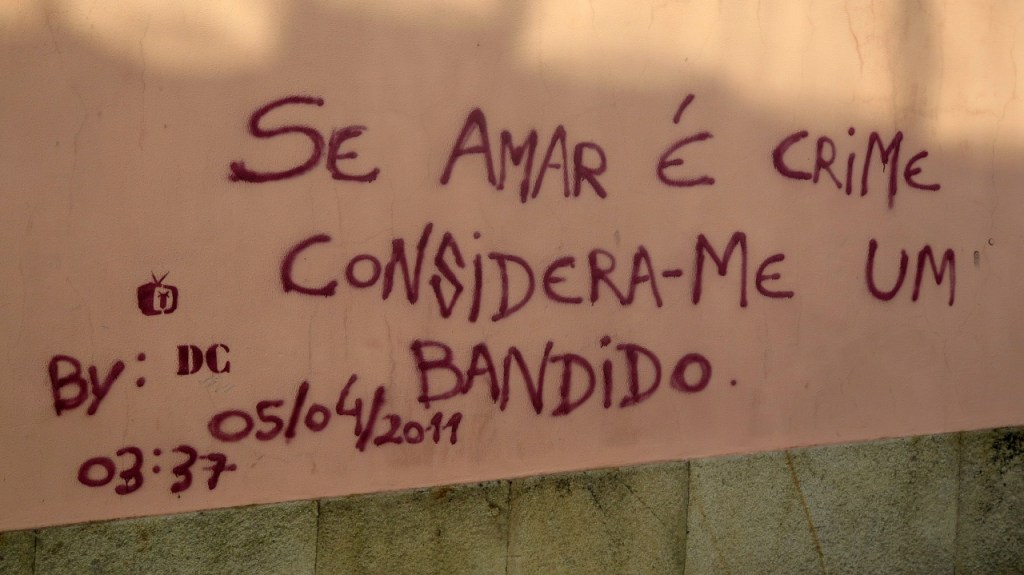 SE AMAR É CRIME
CONSIDERA-ME UM
BANDIDO.
By: DC
05/04/2011
03:37